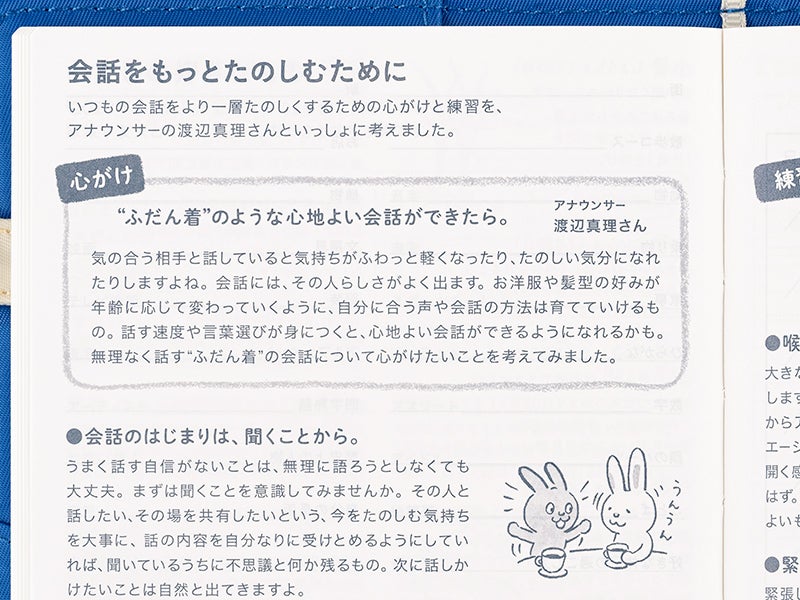 会話をもっとたのしむために
いつもの会話をより一層たのしくするための心がけと練習を、
アナウンサーの渡辺真理さんといっしょに考えました。
心がけ
“ふだん着”のような心地よい会話ができたら。
アナウンサー
渡辺真理さん
気の合う相手と話していると気持ちがふわっと軽くなったり、たのしい気分になれ
たりしますよね。会話には、その人らしさがよく出ます。お洋服や髪型の好みが
年齢に応じて変わっていくように、自分に合う声や会話の方法は育てていけるも
の。話す速度や言葉選びが身につくと、心地よい会話ができるようになれるかも。
無理なく話す“ふだん着”の会話について心がけたいことを考えてみました。
●会話のはじまりは、聞くことから。
うまく話す自信がないことは、無理に語ろうとしなくても
大丈夫。まずは聞くことを意識してみませんか。その人と
話したい、その場を共有したいという、今をたのしむ気持ち
を大事に、話の内容を自分なりに受けとめるようにしてい
れば、聞いているうちに不思議と何か残るもの。次に話しか
けたいことは自然と出てきますよ。
うんうん
練
●喉
大きな
します
からア
エージ
開く感
はず。
よいも
●緊
緊張し